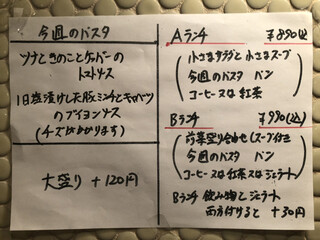 今週のパスタ
ツナときのことケッパーの
トマトソース
1日塩漬けした豚ミンチとキャベツ
のブイヨンソース
(チーズはかかります)
大盛り +120円
Aランチ ¥890(込)
小さなサラダと小さなスープ
今週のパスタ パン
コーヒー又は紅茶
Bランチ ¥990(込)
前菜盛り合わせ(スープ付き
今週のパスタ パン
コーヒー又は紅茶又はジェラート
Bランチ 飲み物とジェラート
両方付けると +30円